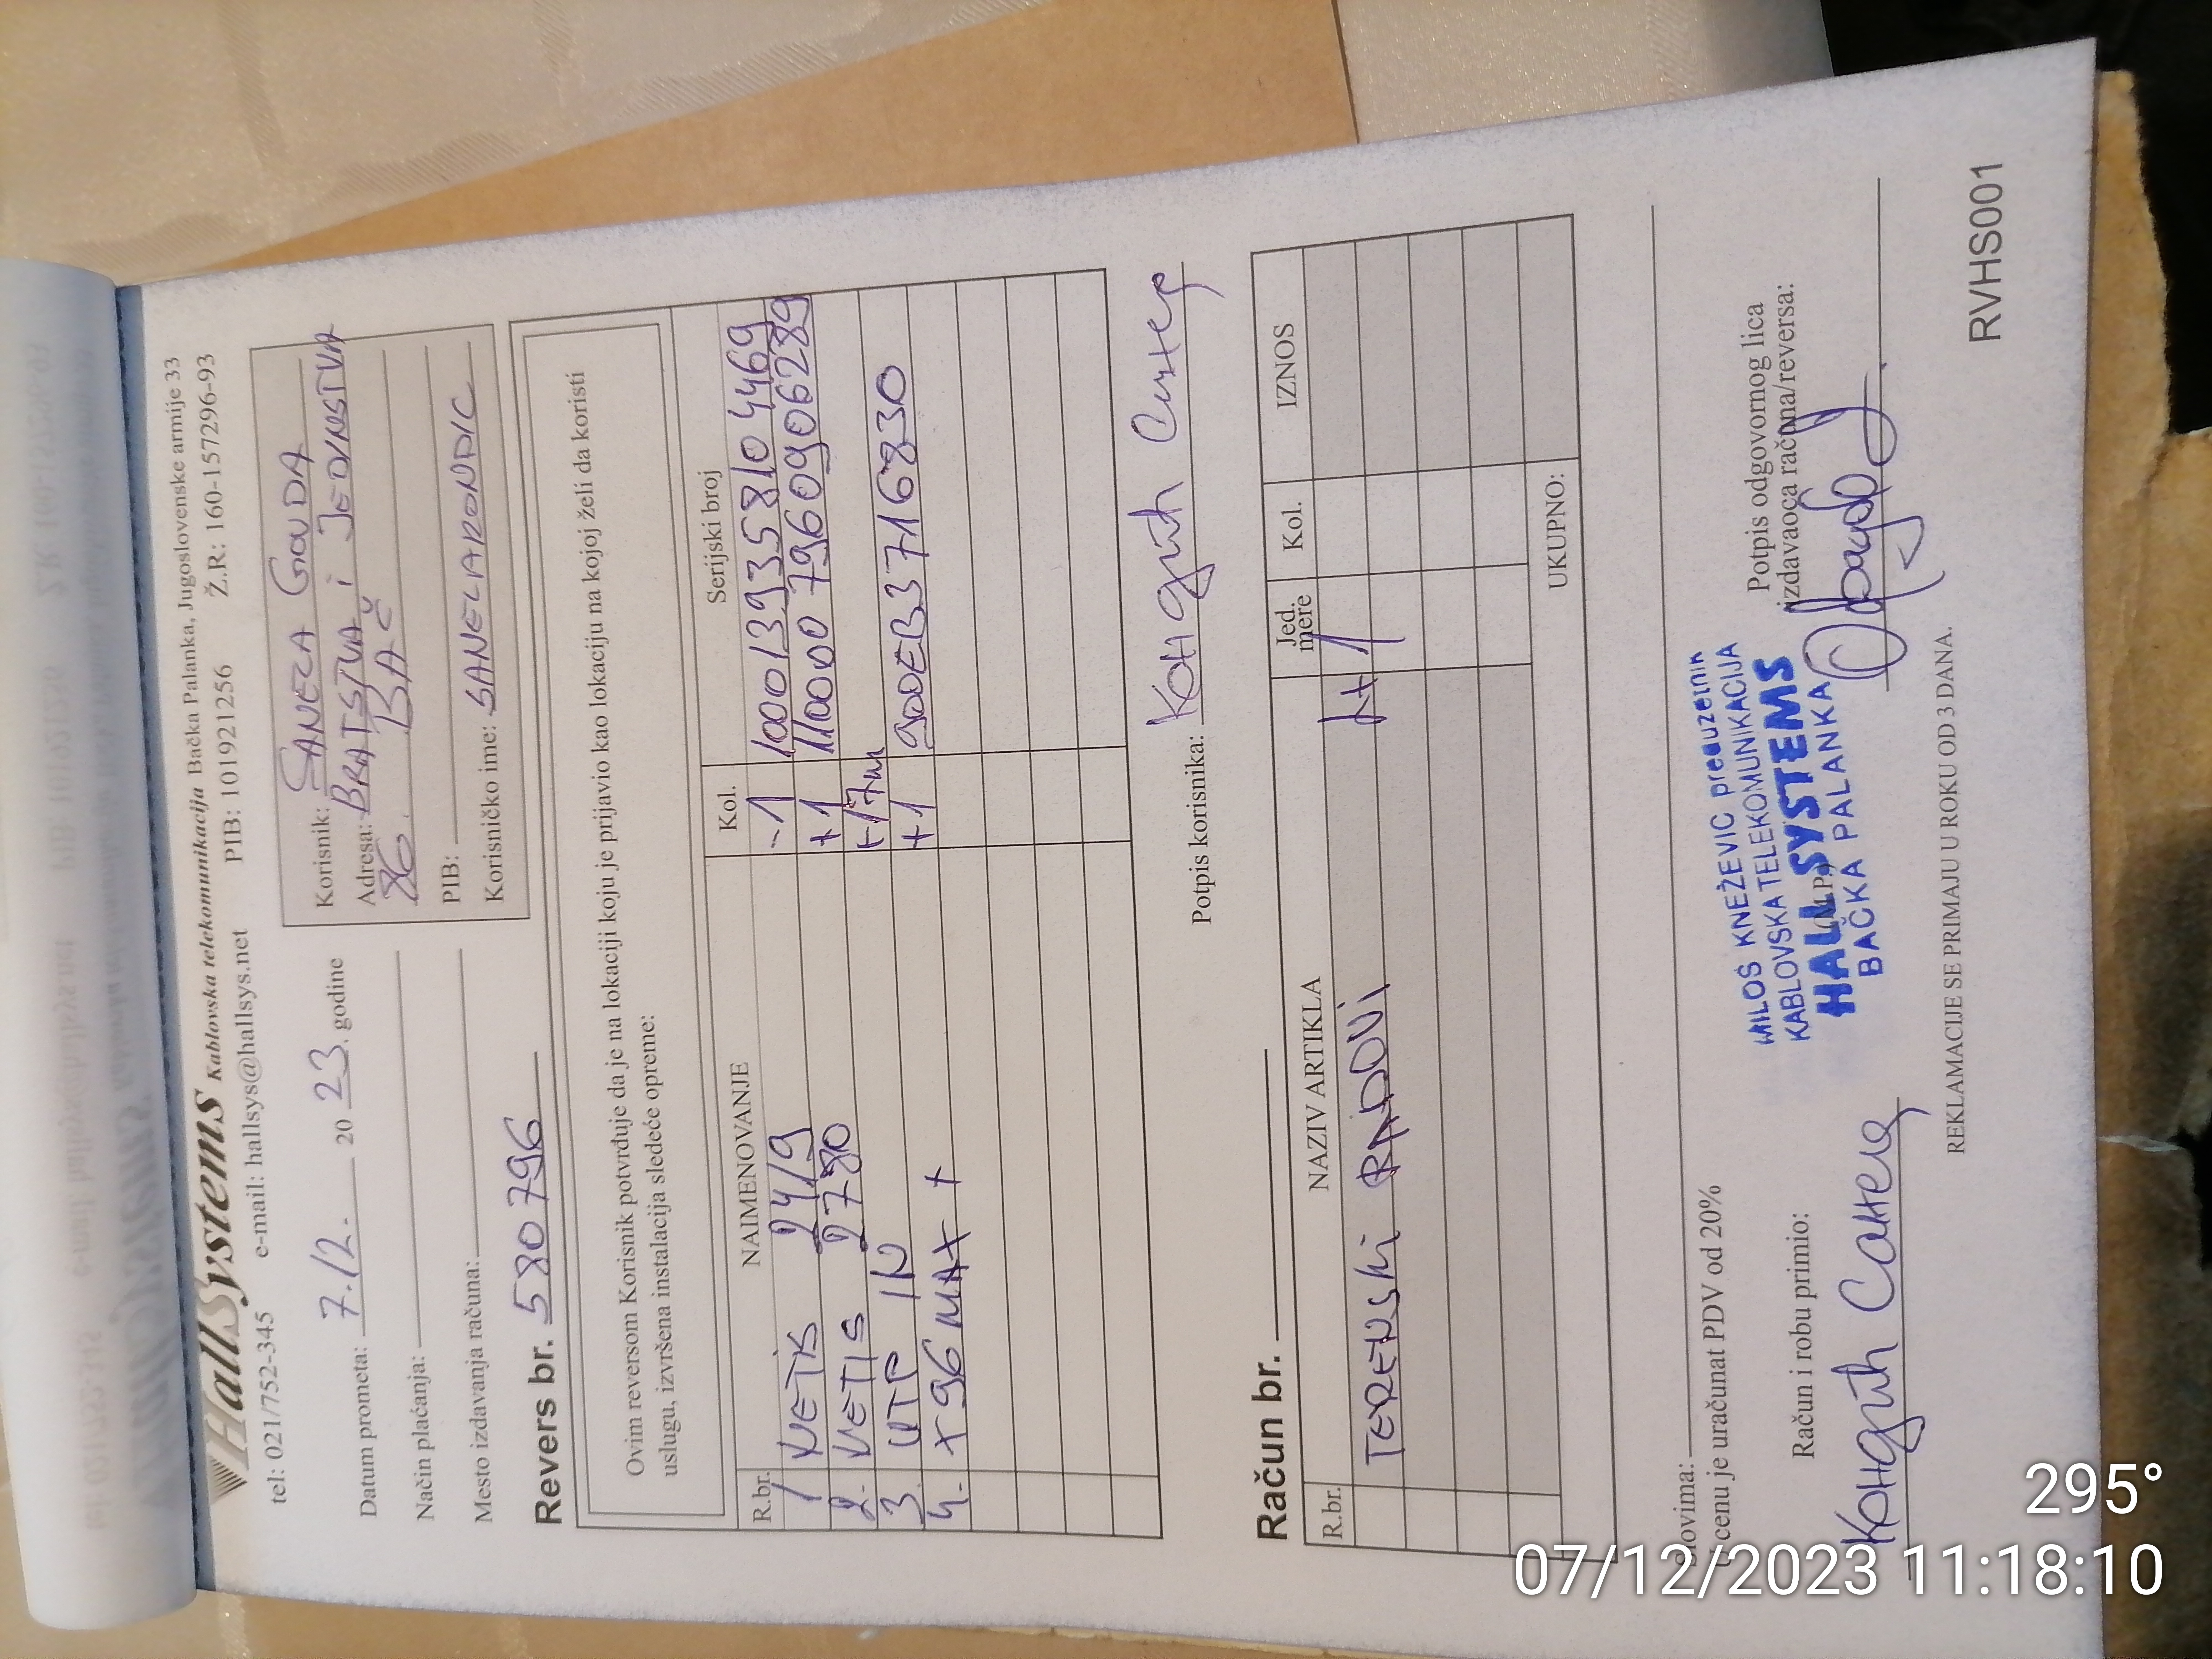 HallSystems Kablovska telekomunikacija Bačka Palanka, Jugoslovenske armije 33
tel: 021/752-345 e-mail: hallsys@hallsys.net PIB: 101921256 Ž.R: 160-157296-93
Datum prometa: 7.12. 2023. godine
Način plaćanja:
Mesto izdavanja računa:
Korisnik: SANELA
Adresa: BRATSTVA i JEDINSTVA
86. BAČ
PIB:
Korisničko ime: SANELARONDIC
Revers br. 580796
Ovim reversom Korisnik potvrđuje da je na lokaciji koju je prijavio kao lokaciju na kojoj želi da koristi
uslugu, izvršena instalacija sledeće opreme:
R.br. NAIMENOVANJE Kol. Serijski broj
1 NETIS 2419 -1 1000139358104469
2. NETIS 2780 +1 110000796090906289
3. UTP IN +17m
4. X96 MAX + +1 900EB3716830
Potpis korisnika:
Račun br.
R.br. NAZIV ARTIKLA Jed. mere Kol. IZNOS
TERENSKI RADOVI H 1
UKUPNO:
Slovima:
U cenu je uračunat PDV od 20%
Račun i robu primio:
Potpis odgovornog lica
izdavaoca računa/reversa:
MILOŠ KNEŽEVIĆ preduzetnik
KABLOVSKA TELEKOMUNIKACIJA
HALL SYSTEMS
BAČKA PALANKA
REKLAMACIJE SE PRIMAJU U ROKU OD 3 DANA.
RVHS001
295°
07/12/2023 11:18:10